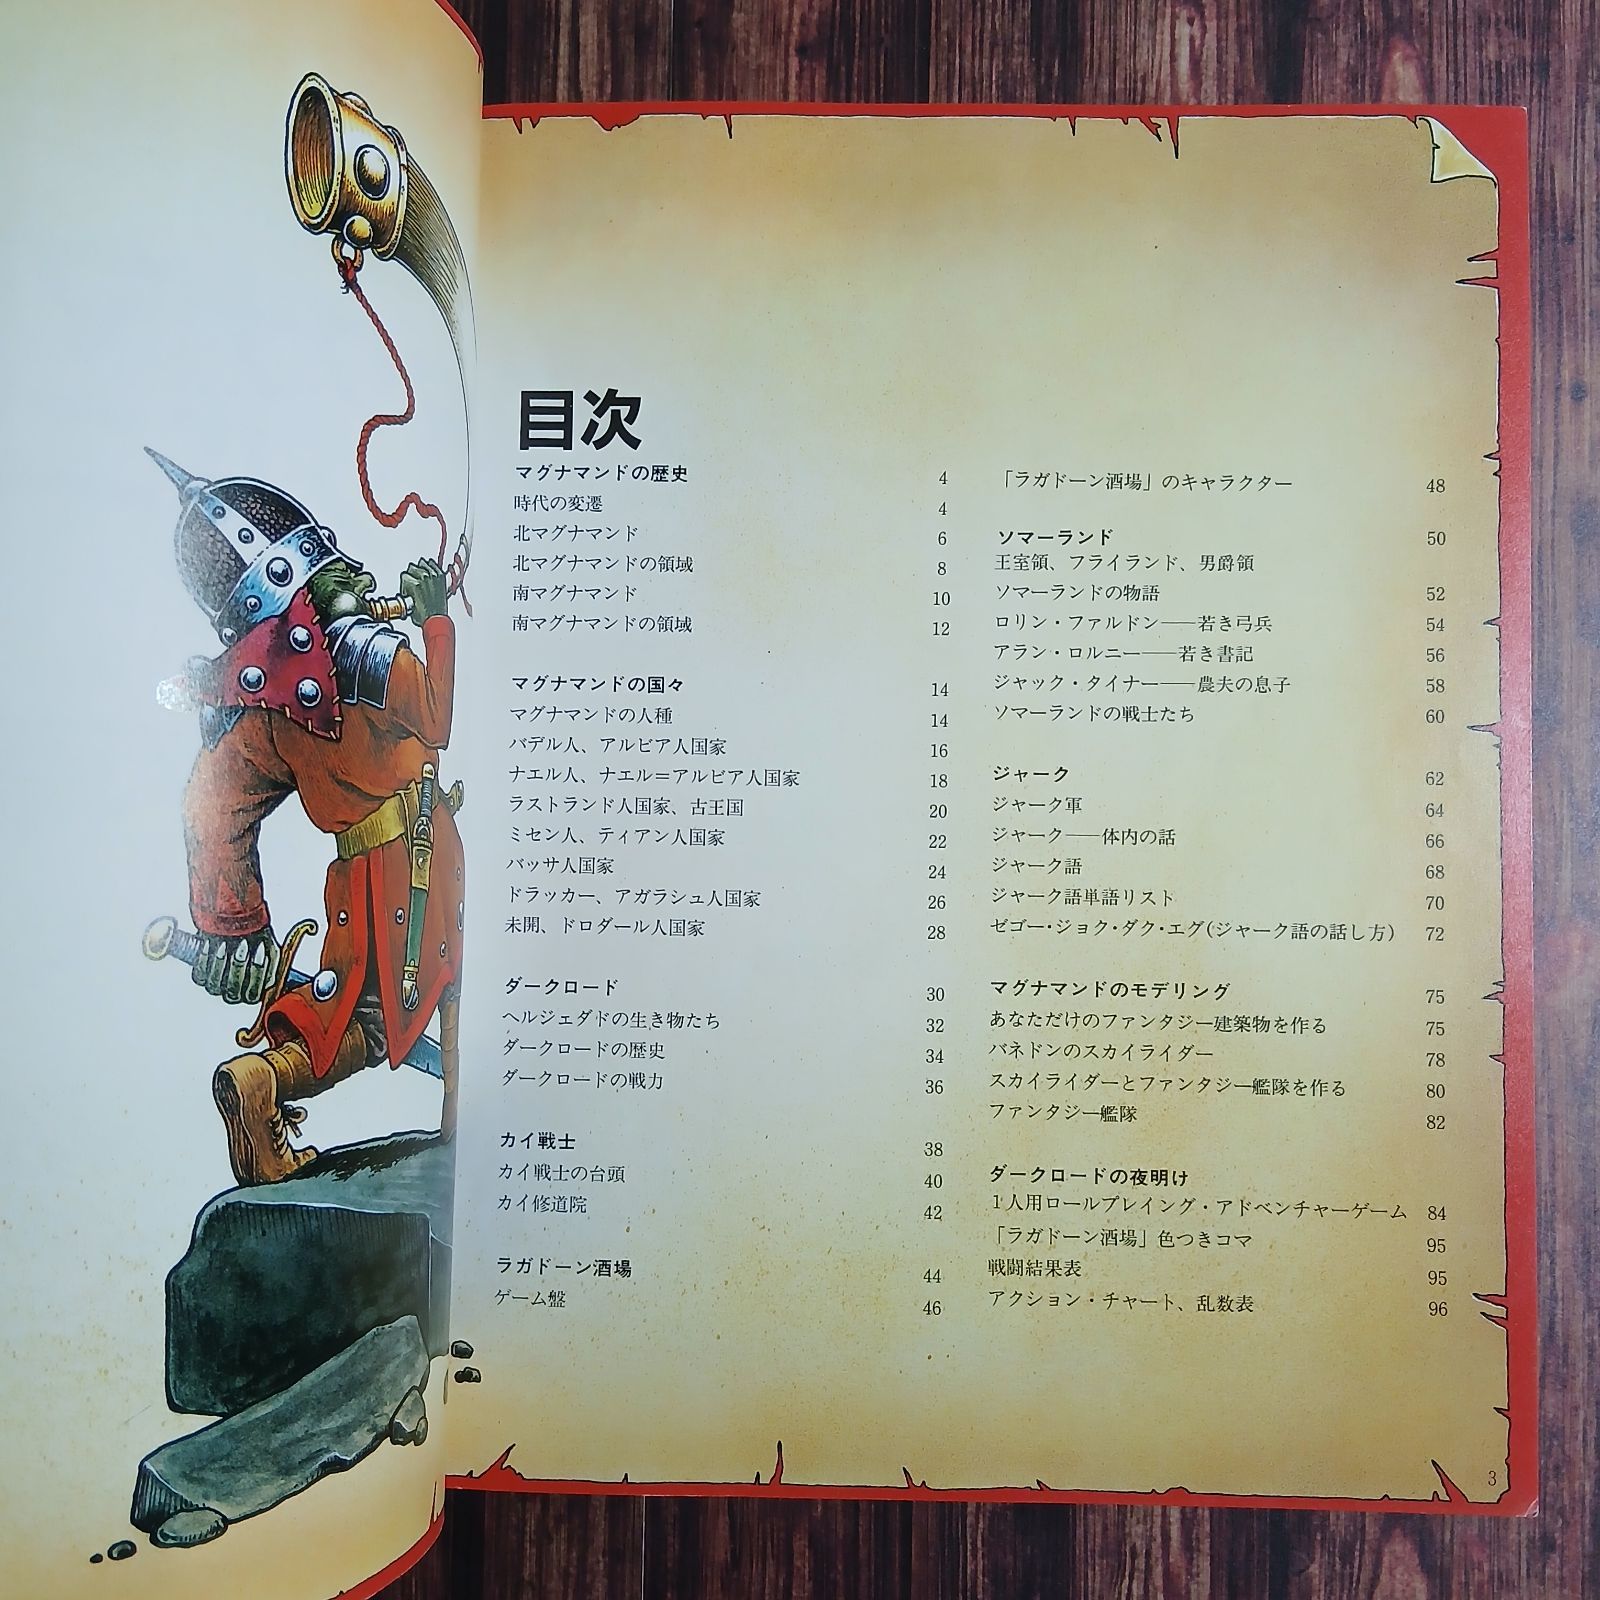 目次
マグナマンドの歴史 4
時代の変遷 4
北マグナマンド 6
北マグナマンドの領域 8
南マグナマンド 10
南マグナマンドの領域 12
マグナマンドの国々 14
マグナマンドの人種 14
バデル人、アルビア人国家 16
ナエル人、ナエル＝アルビア人国家 18
ラストランド人国家、古王国 20
ミセン人、ティアン人国家 22
バッサ人国家 24
ドラッカー、アガラシュ人国家 26
未開、ドロダール人国家 28
ダークロード 30
ヘルジェダドの生き物たち 32
ダークロードの歴史 34
ダークロードの戦力 36
カイ戦士 38
カイ戦士の台頭 40
カイ修道院 42
ラガドーン酒場 44
ゲーム盤 46
「ラガドーン酒場」のキャラクター 48
ソマーランド 50
王室領、フライランド、男爵領
ソマーランドの物語 52
ロリン・ファルドン──若き弓兵 54
アラン・ロルニー──若き書記 56
ジャック・タイナー──農夫の息子 58
ソマーランドの戦士たち 60
ジャーク 62
ジャーク軍 64
ジャーク──体内の話 66
ジャーク語 68
ジャーク語単語リスト 70
ゼゴー・ジョク・ダク・エグ(ジャーク語の話し方) 72
マグナマンドのモデリング 75
あなただけのファンタジー建築物を作る 75
バネドンのスカイライダー 78
スカイライダーとファンタジー艦隊を作る 80
ファンタジー艦隊 82
ダークロードの夜明け
1人用ロールプレイング・アドベンチャーゲーム 84
「ラガドーン酒場」色つきコマ 95
戦闘結果表 95
アクション・チャート、乱数表 96
3